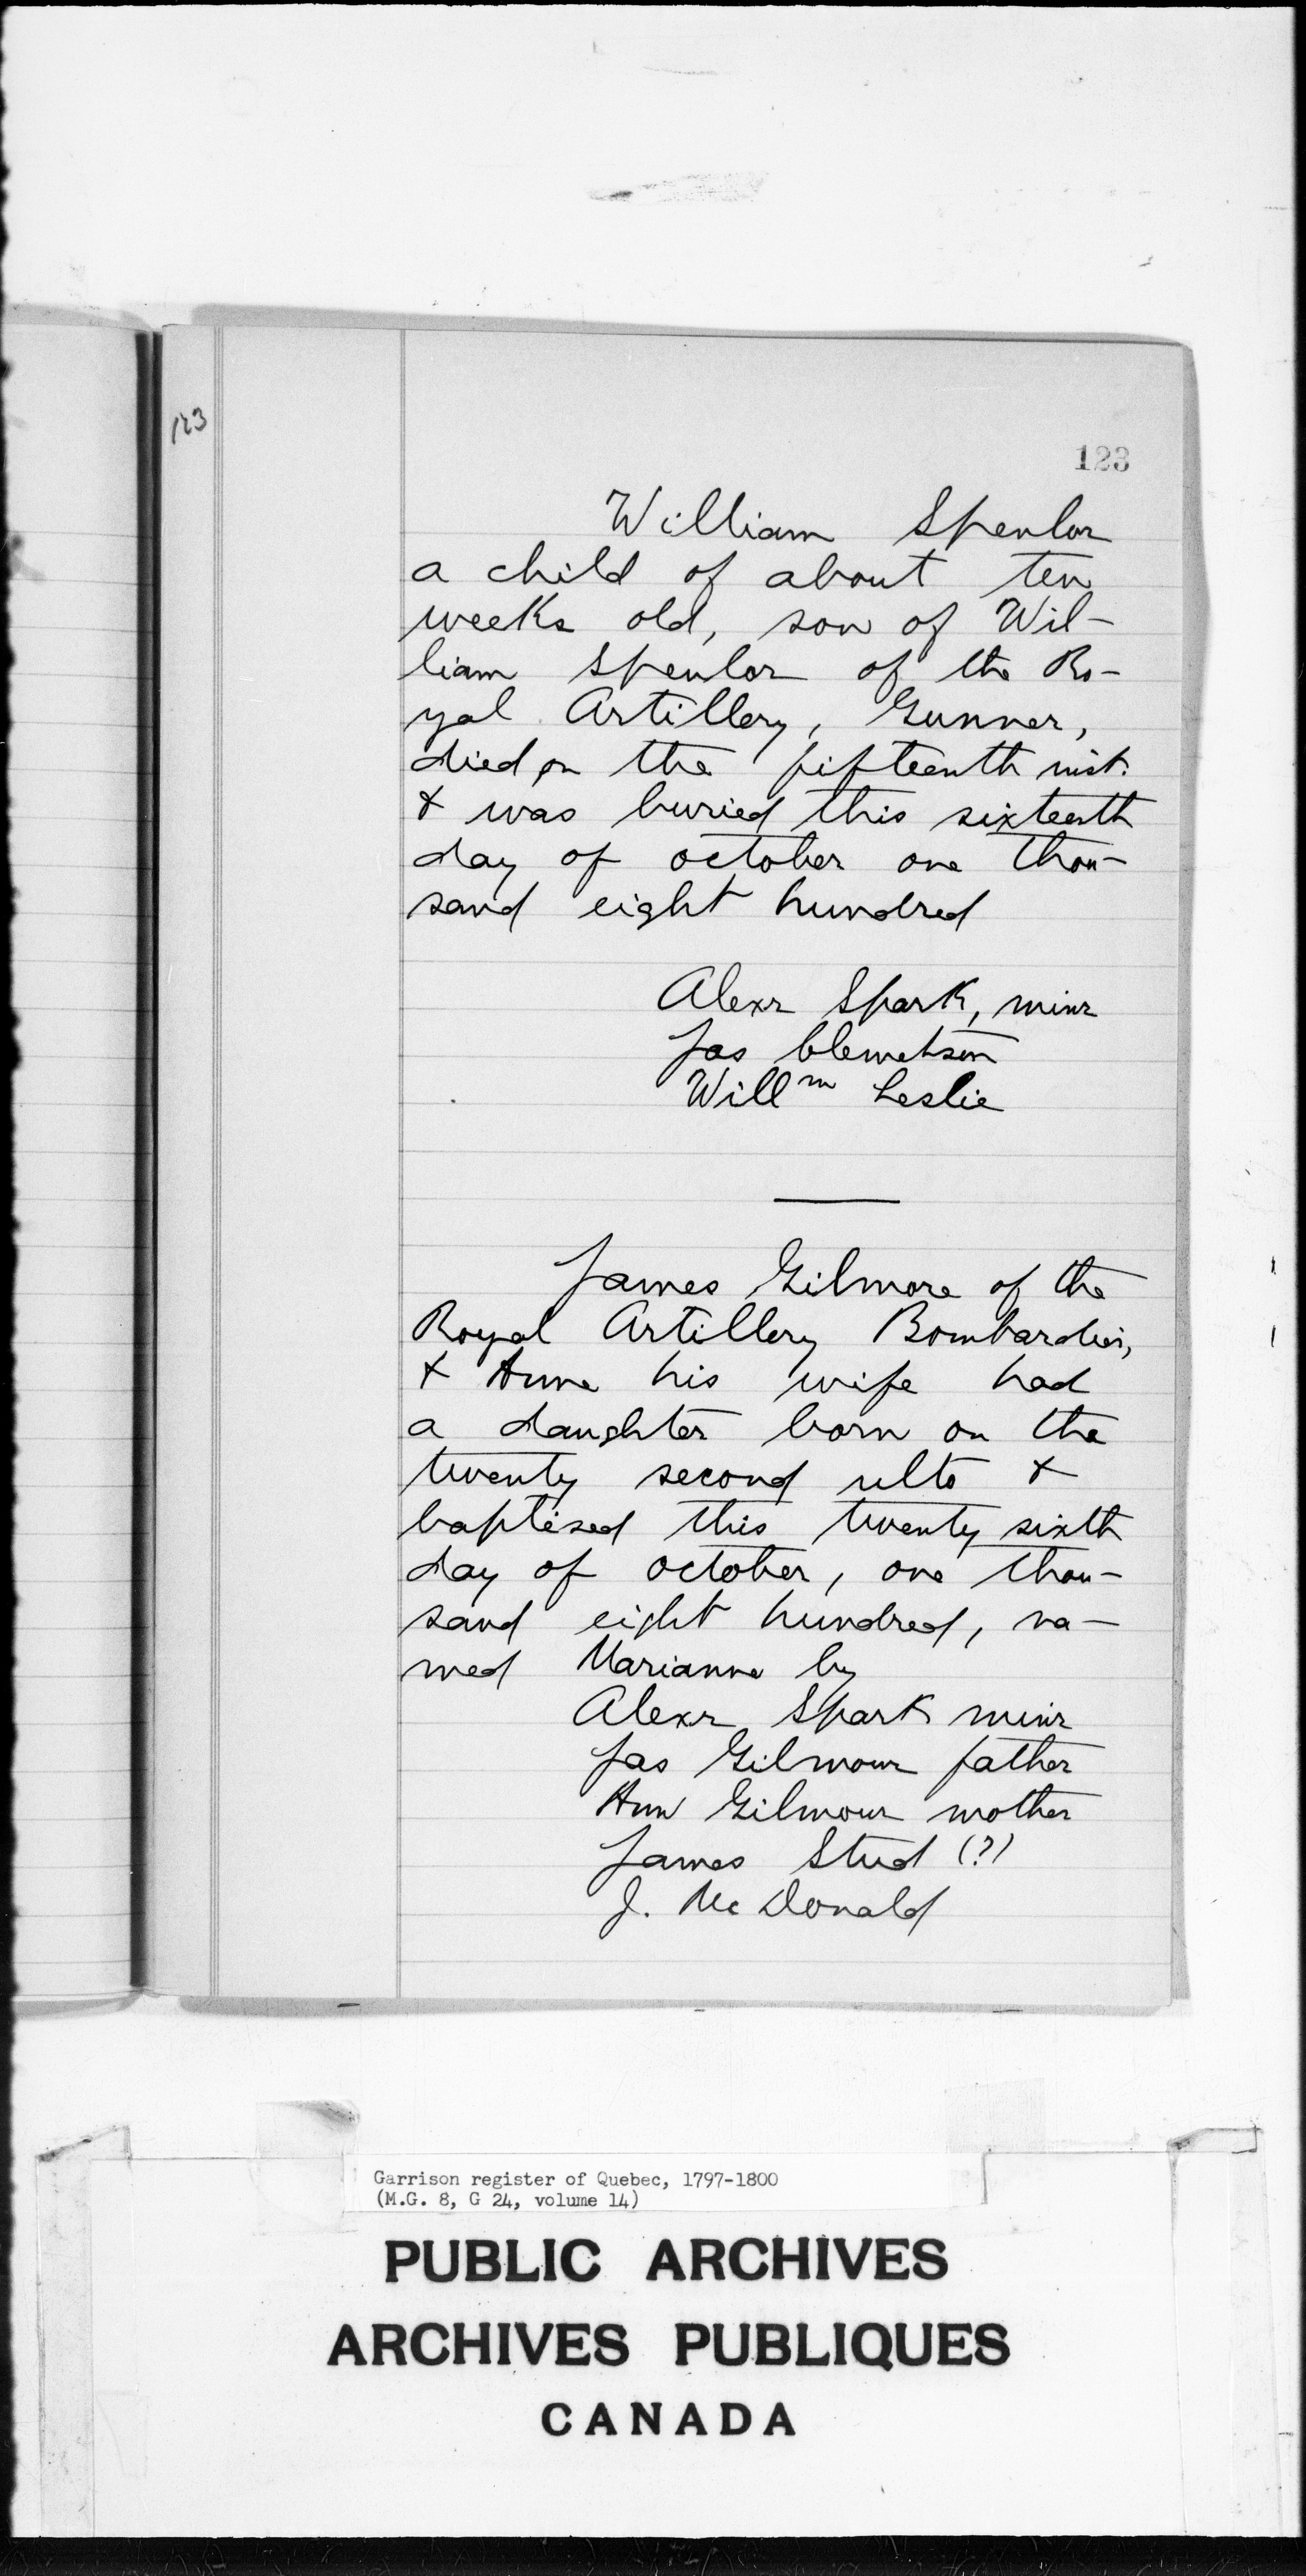 123
123
William Spenlor
a child of about ten
weeks old, son of Wil-
liam Spenlor of the Ro-
yal Artillery, Gunner,
died on the fifteenth inst.
& was buried this sixteenth
day of october one thou-
sand eight hundred
Alexr Spark, minr
Jas Clewetson
Willm Leslie
James Gilmore of the
Royal Artillery Bombardier,
& Anne his wife had
a daughter born on the
twenty second ulto &
baptized this twenty sixth
day of october, one thou-
sand eight hundred, na-
med Marianne by
Alexr Spark minr
Jas Gilmour father
Ann Gilmour mother
James Stud (?)
J. McDonald
Garrison register of Quebec, 1797-1800
(M.G. 8, G 24, volume 14)
PUBLIC ARCHIVES
ARCHIVES PUBLIQUES
CANADA